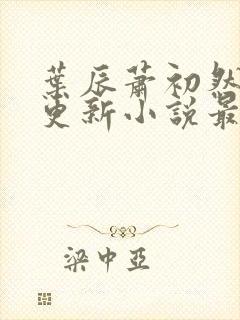 葉辰蕭初然
更新小說最
梁中亞